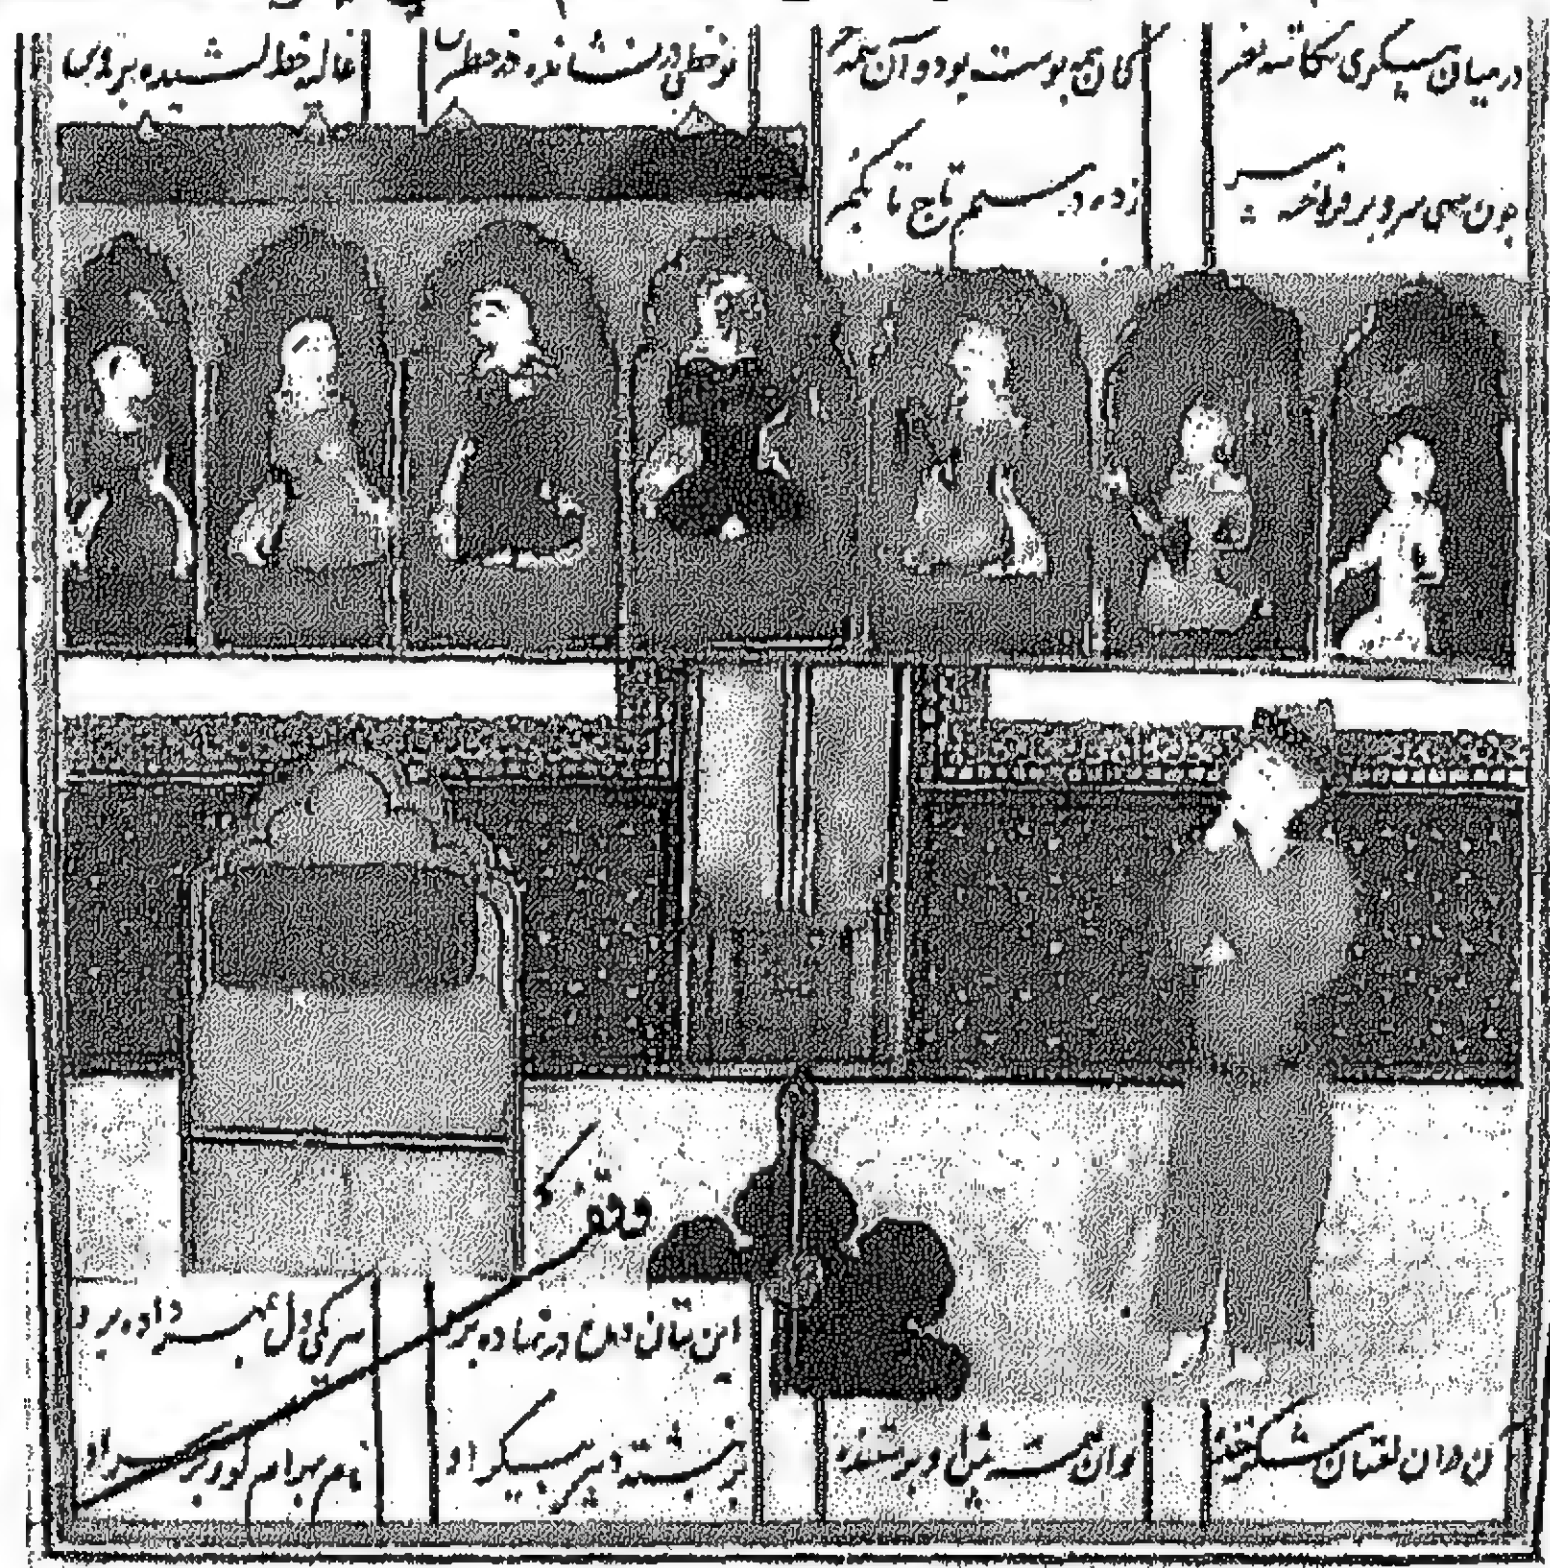 در میان پیکری نگاشته نغز کان همه پوست بود و آن همه نوخطی در نشانده در غالیه خط کشیده بر
چون سهی سرو برفراخته زده در سیم تاج تا بکمر
این بتان دیده در نهاده برو هر یکی دل بمهر داده برو
وقف
در آن لعبتان شکر خنده وان همه پیش او پرستنده بر نبشته دبیر پیکر او نام بهرام گور بر سر او